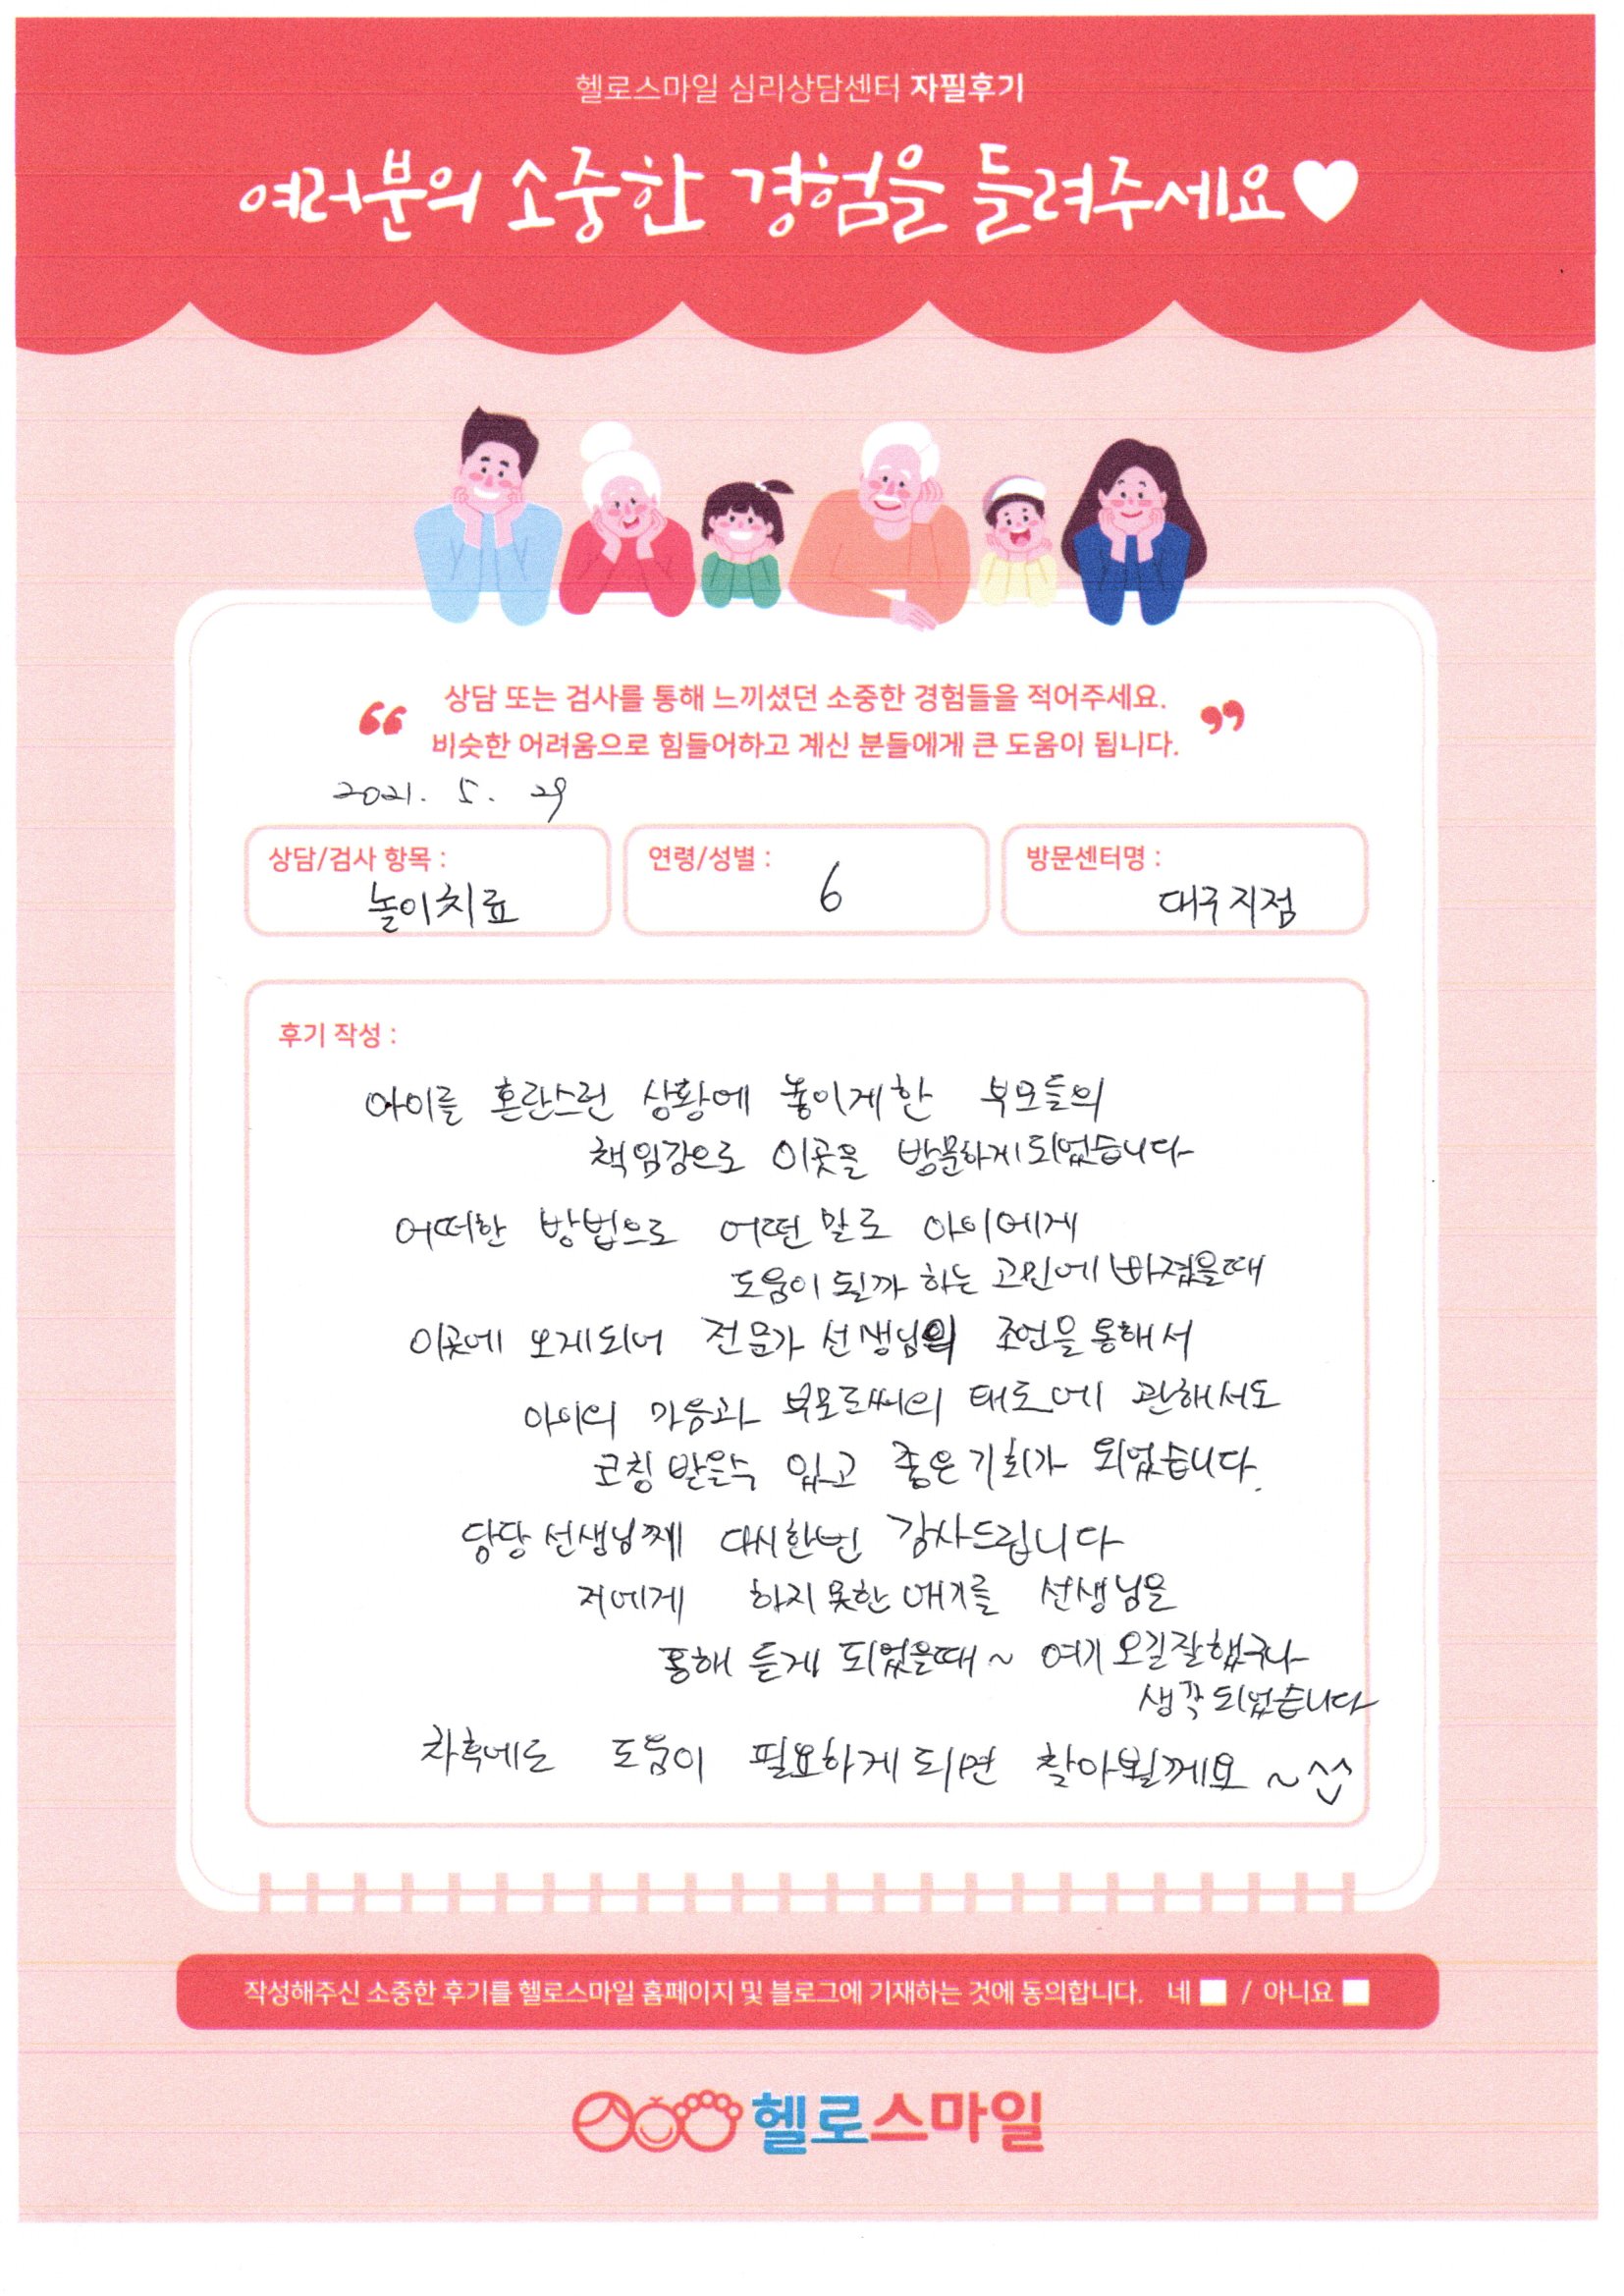 헬로스마일 심리상담센터 자필후기
여러분의 소중한 경험을 들려주세요♥
“ 상담 또는 검사를 통해 느끼셨던 소중한 경험들을 적어주세요. ”
비슷한 어려움으로 힘들어하고 계신 분들에게 큰 도움이 됩니다.
2021. 5. 29
상담/검사 항목 : 놀이치료
연령/성별 : 6
방문센터명 : 대구지점
후기 작성 :
아이를 혼란스런 상황에 놓이게한 부모들의
책임감으로 이곳을 방문하게되었습니다
어떠한 방법으로 어떤 말로 아이에게
도움이 될까 하는 고민에 빠졌을때
이곳에 오게되어 전문가 선생님의 조언을 통해서
아이의 마음과 부모로써의 태도에 관해서도
코칭 받을수 있고 좋은기회가 되었습니다.
담당 선생님께 다시한번 감사드립니다
저에게 하지못한 얘기를 선생님을
통해 듣게 되었을때~ 여기 오길잘했구나
생각되었습니다
차후에도 도움이 필요하게되면 찾아뵐께요 ~^^
작성해주신 소중한 후기를 헬로스마일 홈페이지 및 블로그에 기재하는 것에 동의합니다. 네 ■ / 아니요 ■
헬로스마일